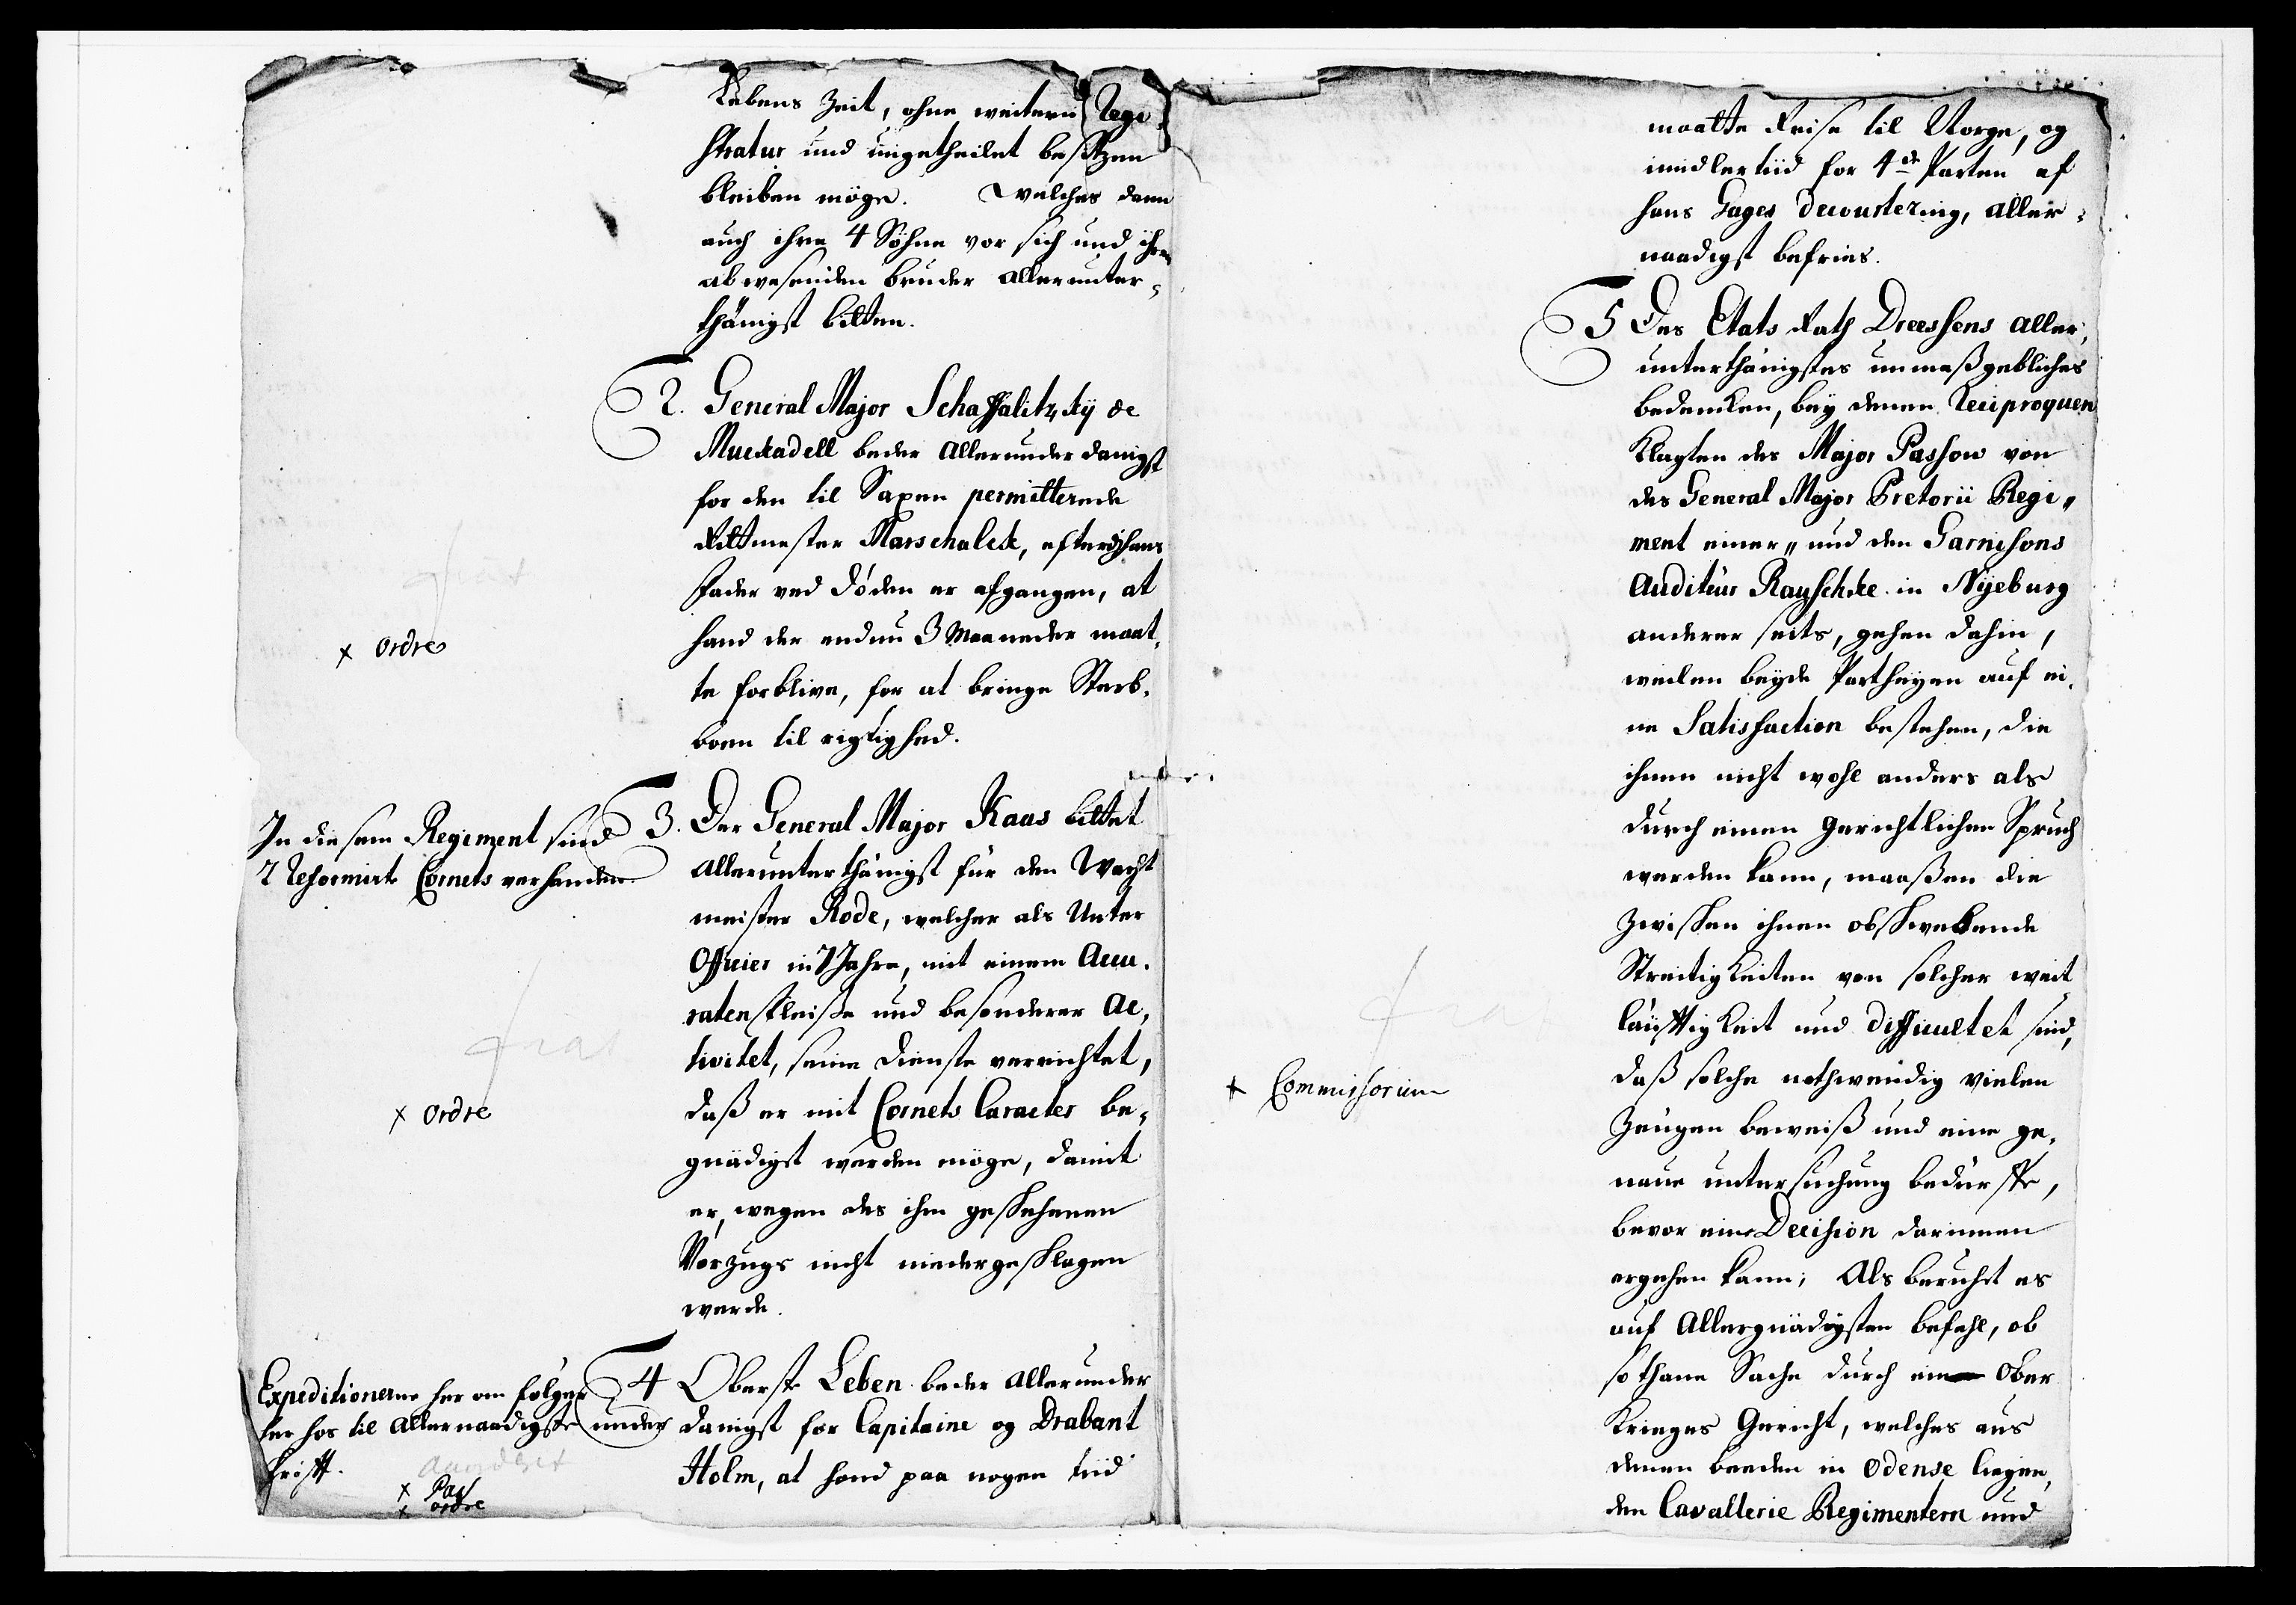 Lebens Zeit, ohne weitere Regi¬
stratur und ungetheilet besitzen
bleiben möge. Welches dann
auch ihre 4 Söhne vor sich und ihren
abwesenden Bruder allerunter¬
thänigst bitten.
2. General Major Schaffalitzkÿ de
Muckadell beder allerunderdanigst
for den til Saxen permitterede
Rittmester Marschalck, efter at hans
Fader ved Døden er afgangen, at
hand der endnu 3 Maaneder maat¬
te forblive, for at bringe Sterb¬
boen til rigtighed.
x ordre
3. Der General Major Kaas bittet
allerunterthänigst für den Wacht
meister Rode, welcher als Unter
Officier in 7 Jahre, mit einem Accu¬
raten Fleiße und besonderer Ac¬
tivitet, seine Dienste verrichtet,
daß er mit Cornets Caracter be¬
gnädigt werden möge, damit
er, wegen des ihm geschehenen
Vorzugs nicht niedergeschlagen
werde.
In diesem Regiment sind
2 Reformirte Cornets verhanden.
x ordre
4 Oberste Leben beder allerunder
danigst for Capitaine og Drabant
Holm, at hand paa nogen tiid
Expeditionerne her om følger
her hos til allernaadigste under
skrift.
x Pas
x ordre
maatte Reise til Norge, og
imidlertiid for 4de Parten af
hans Gages decourtering, aller¬
naadigst befries.
5 Des Etats Rath Dreessens aller¬
unterthänigstes unmaßgebliches
bedencken, beÿ denen Reciproquen
Klagten des Major Passow von
des General Major Pretorii Regi¬
ment einer¬ und den Garnisons
Auditeur Rauschke in Nÿeburg
anderer seits, gehen dahin,
weilen beÿde Partheÿen auf ei¬
ne Satisfaction bestehen, die
ihnen nicht wohl anders als
durch einen gerichtlichen Spruch
werden kann, maaßen die
zwischen ihnen obschwebende
Streitigkeiten von solcher weit
läufftigkeit und difficultet sind,
daß solche nothwendig vielen
Zeugen beweiß und eine ge¬
naue untersuchung bedürffe,
bevor eine Decision darinnen
ergehen kann; Als beruhet es
auf Allergnädigsten befehl, ob
sothane Sache durch ein Ober
Krieges Gericht, welches aus
denen beeden in Odense liegen¬
den Cavallerie Regimentern und
x Commissorium